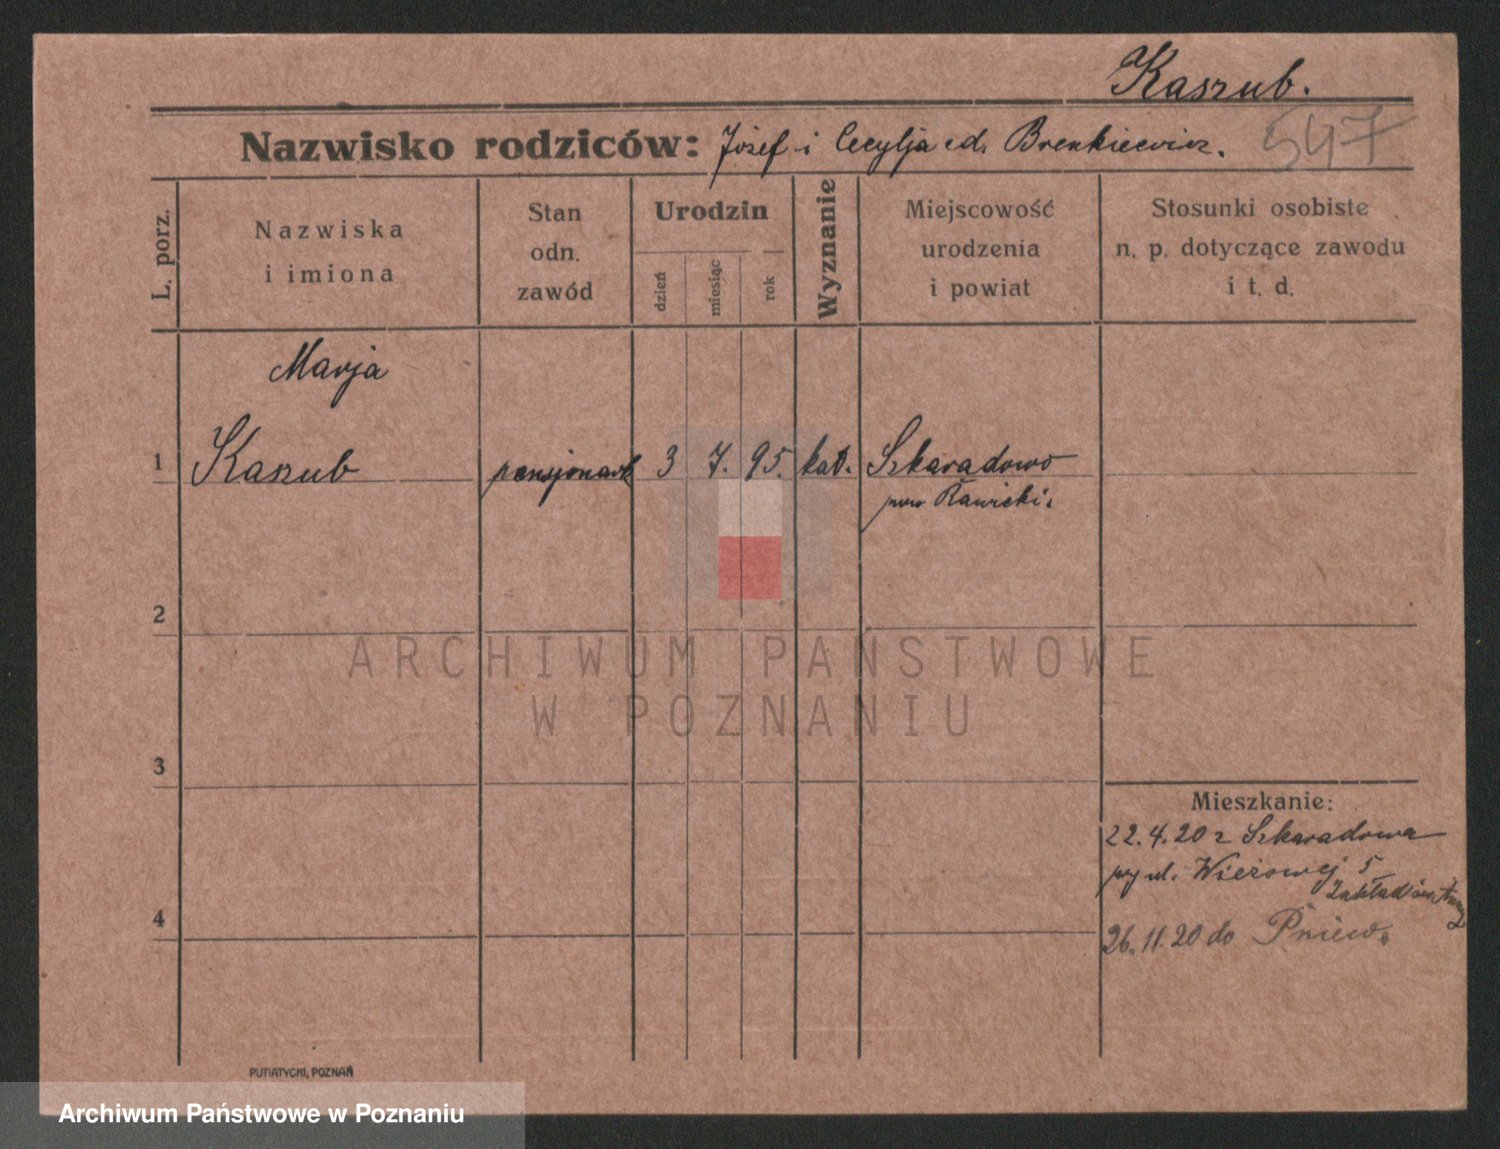 Kaszub.
Nazwisko rodziców: Józef i Cecylja
547
L. porz.
Nazwiska
i imiona
Stan
odn.
zawód
Urodzin
dzień
miesiąc
rok
Wyznanie
Miejscowość
urodzenia
i powiat
Stosunki osobiste
n. p. dotyczące zawodu
i t. d.
Marja
1 Kaszub pensjonark 3 7. 95. kat. Szkaradowo
pow Rawicki.
2
ARCHIWUM PAŃSTWOWE
W POZNANIU
3
Mieszkanie:
22.4.20 z Szkaradowa
ul. Wieżowej 5
4
26.11.20 do Pniew.
PUTIATYCKI, POZNAŃ
Archiwum Państwowe w Poznaniu